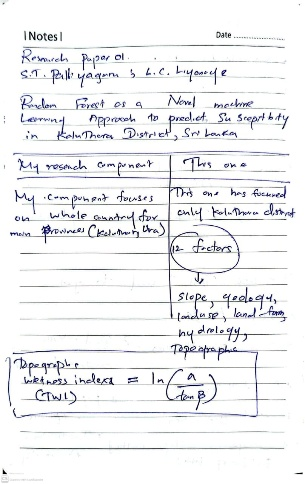 |Notes|
Date
Research Paper 01.
S.T. & L.C. Liyanage
Random Forest as a Novel machine
Learning Approach to predict Susceptibility
in Kaluthara District, Sri Lanka
My research component
This one
My component focuses
on whole country for
main provinces (Kaluthara,
This one has focused
only Kaluthara district
12 factors
slope, geology,
landuse, land-form,
hydrology,
Topographic
Topographic
wetness index = ln(a/tanβ)
(TWI)